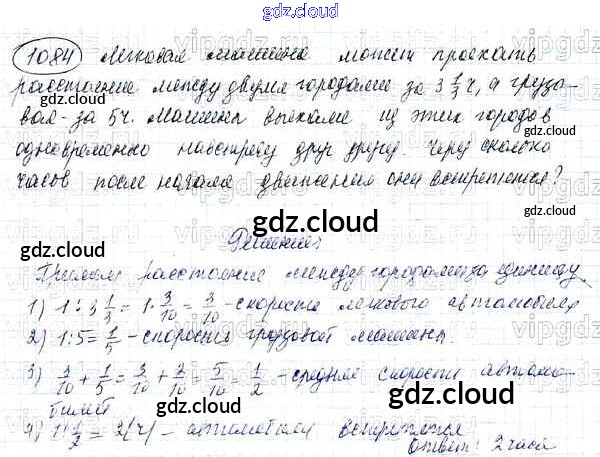 gdz.cloud
1084 Легковая машина может проехать
расстояние между двумя городами за 3 1/3 ч, а грузо-
вая - за 5ч. Машины выехали из этих городов
одновременно навстречу друг другу. Через сколько
часов после начала движения они встретятся?
gdz.cloud
Решение
Примем расстояние между городами за единицу
1) 1 : 3 1/3 = 1 · 3/10 = 3/10 - скорость легкового автомобиля
2) 1:5 = 1/5 - скорость грузовой машины.
3) 3/10 + 1/5 = 3/10 + 2/10 = 5/10 = 1/2 - средняя скорость автомо-
билей
4) 1 : 1/2 = 2(ч) - автомобили встретятся
Ответ: 2 часа
gdz.cloud